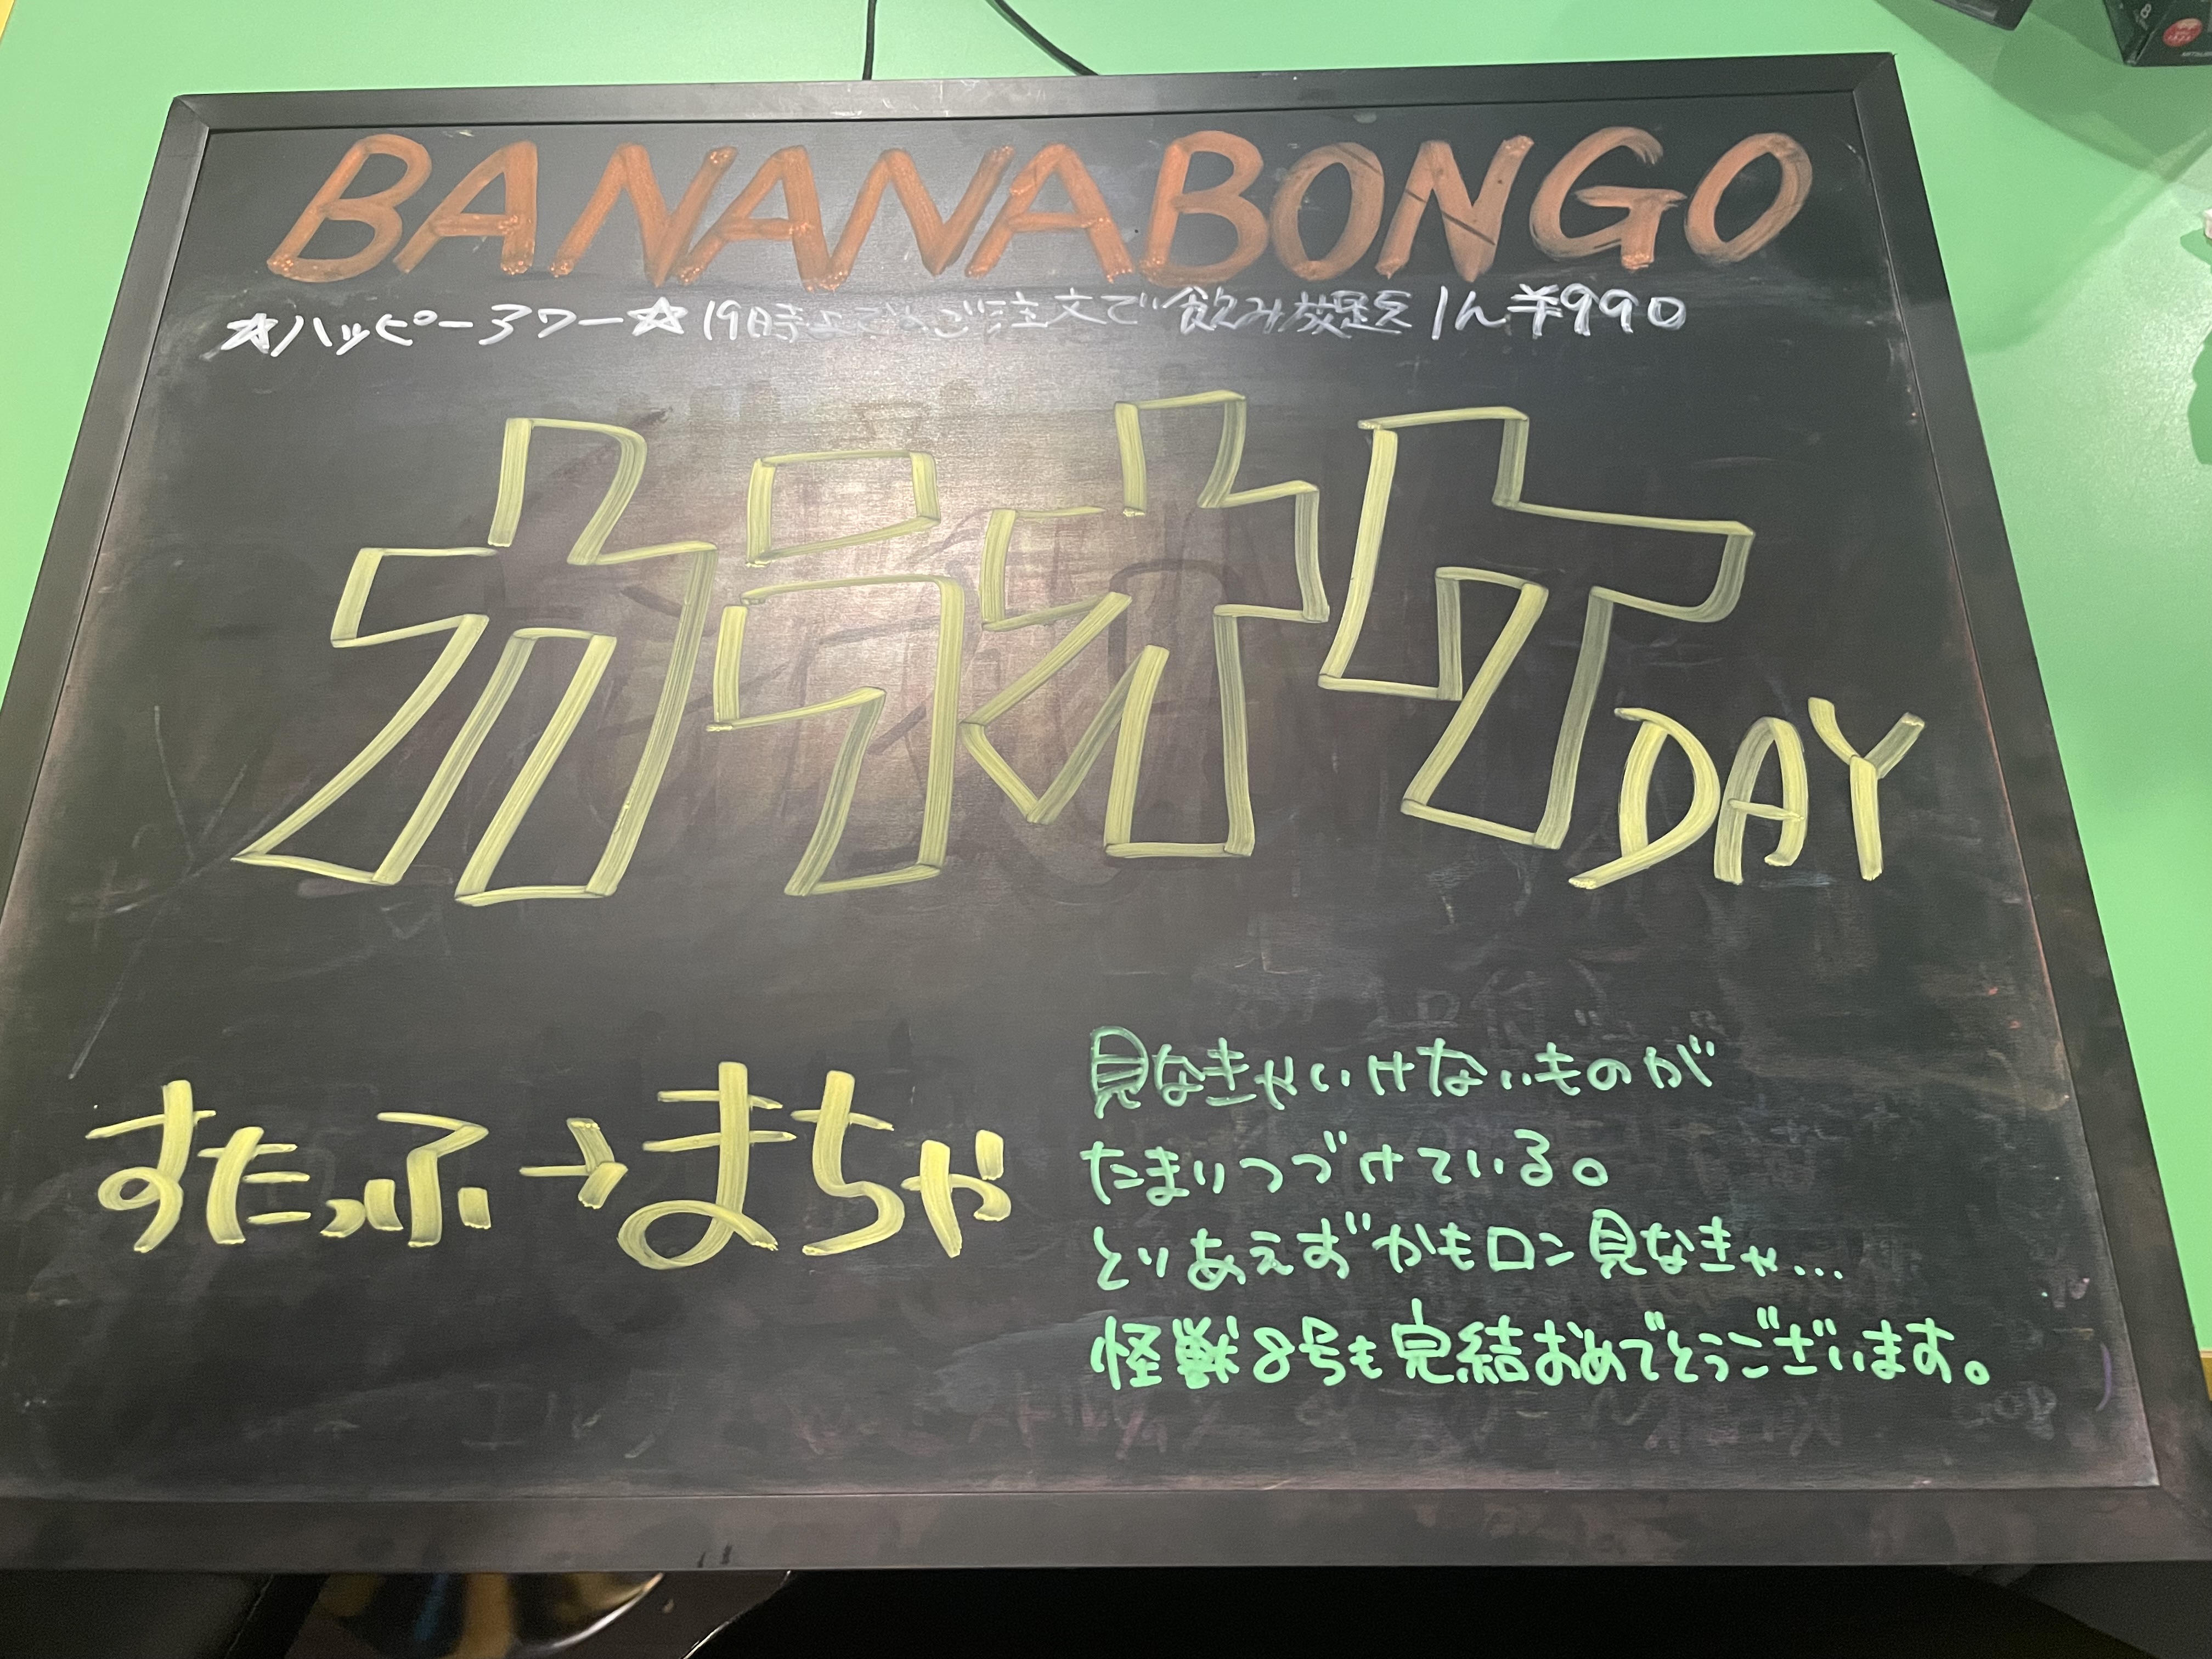 BANANABONGO
☆ハッピーアワー☆19時までのご注文で飲み放題1h¥990
カラオケ DAY
見なきゃいけないものが
たまりつづけている。
とりあえずかもロン見なきゃ…
怪獣8号も完結おめでとうございます。
すたっふ→まちゃ